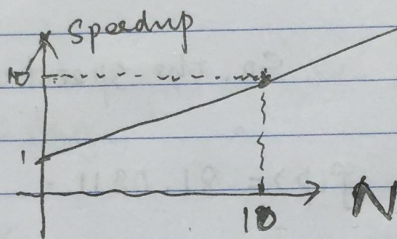 Speedup
10
1
10
N